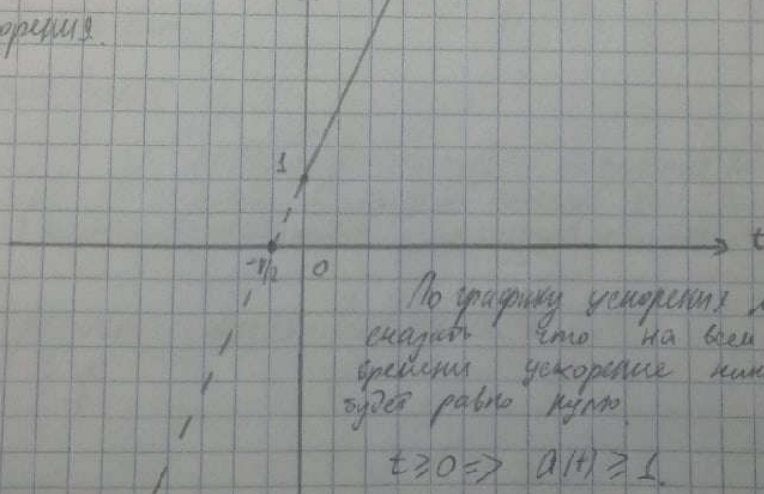 орения.
1
t
-1/2
0
По графику ускорения
сказать что на всем
времени ускорение ник
будет равно нулю.
t ≥ 0 => a(t) ≥ 1.